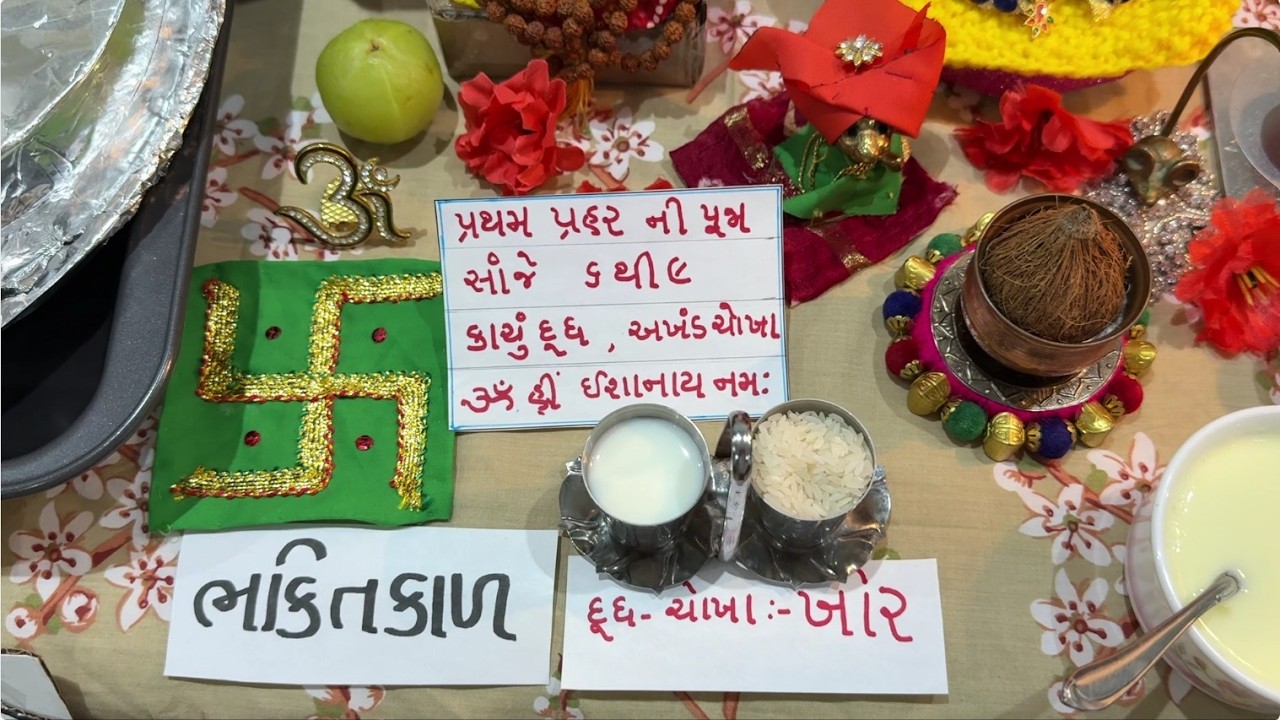 ૐ
પ્રથમ પ્રહર ની પૂજા
સાંજે ૬ થી ૯
કાચું દૂધ , અખંડ ચોખા
ૐ હ્રીં ઈશાનાય નમઃ
ભકિતકાળ
દૂધ - ચોખા :- ખીર